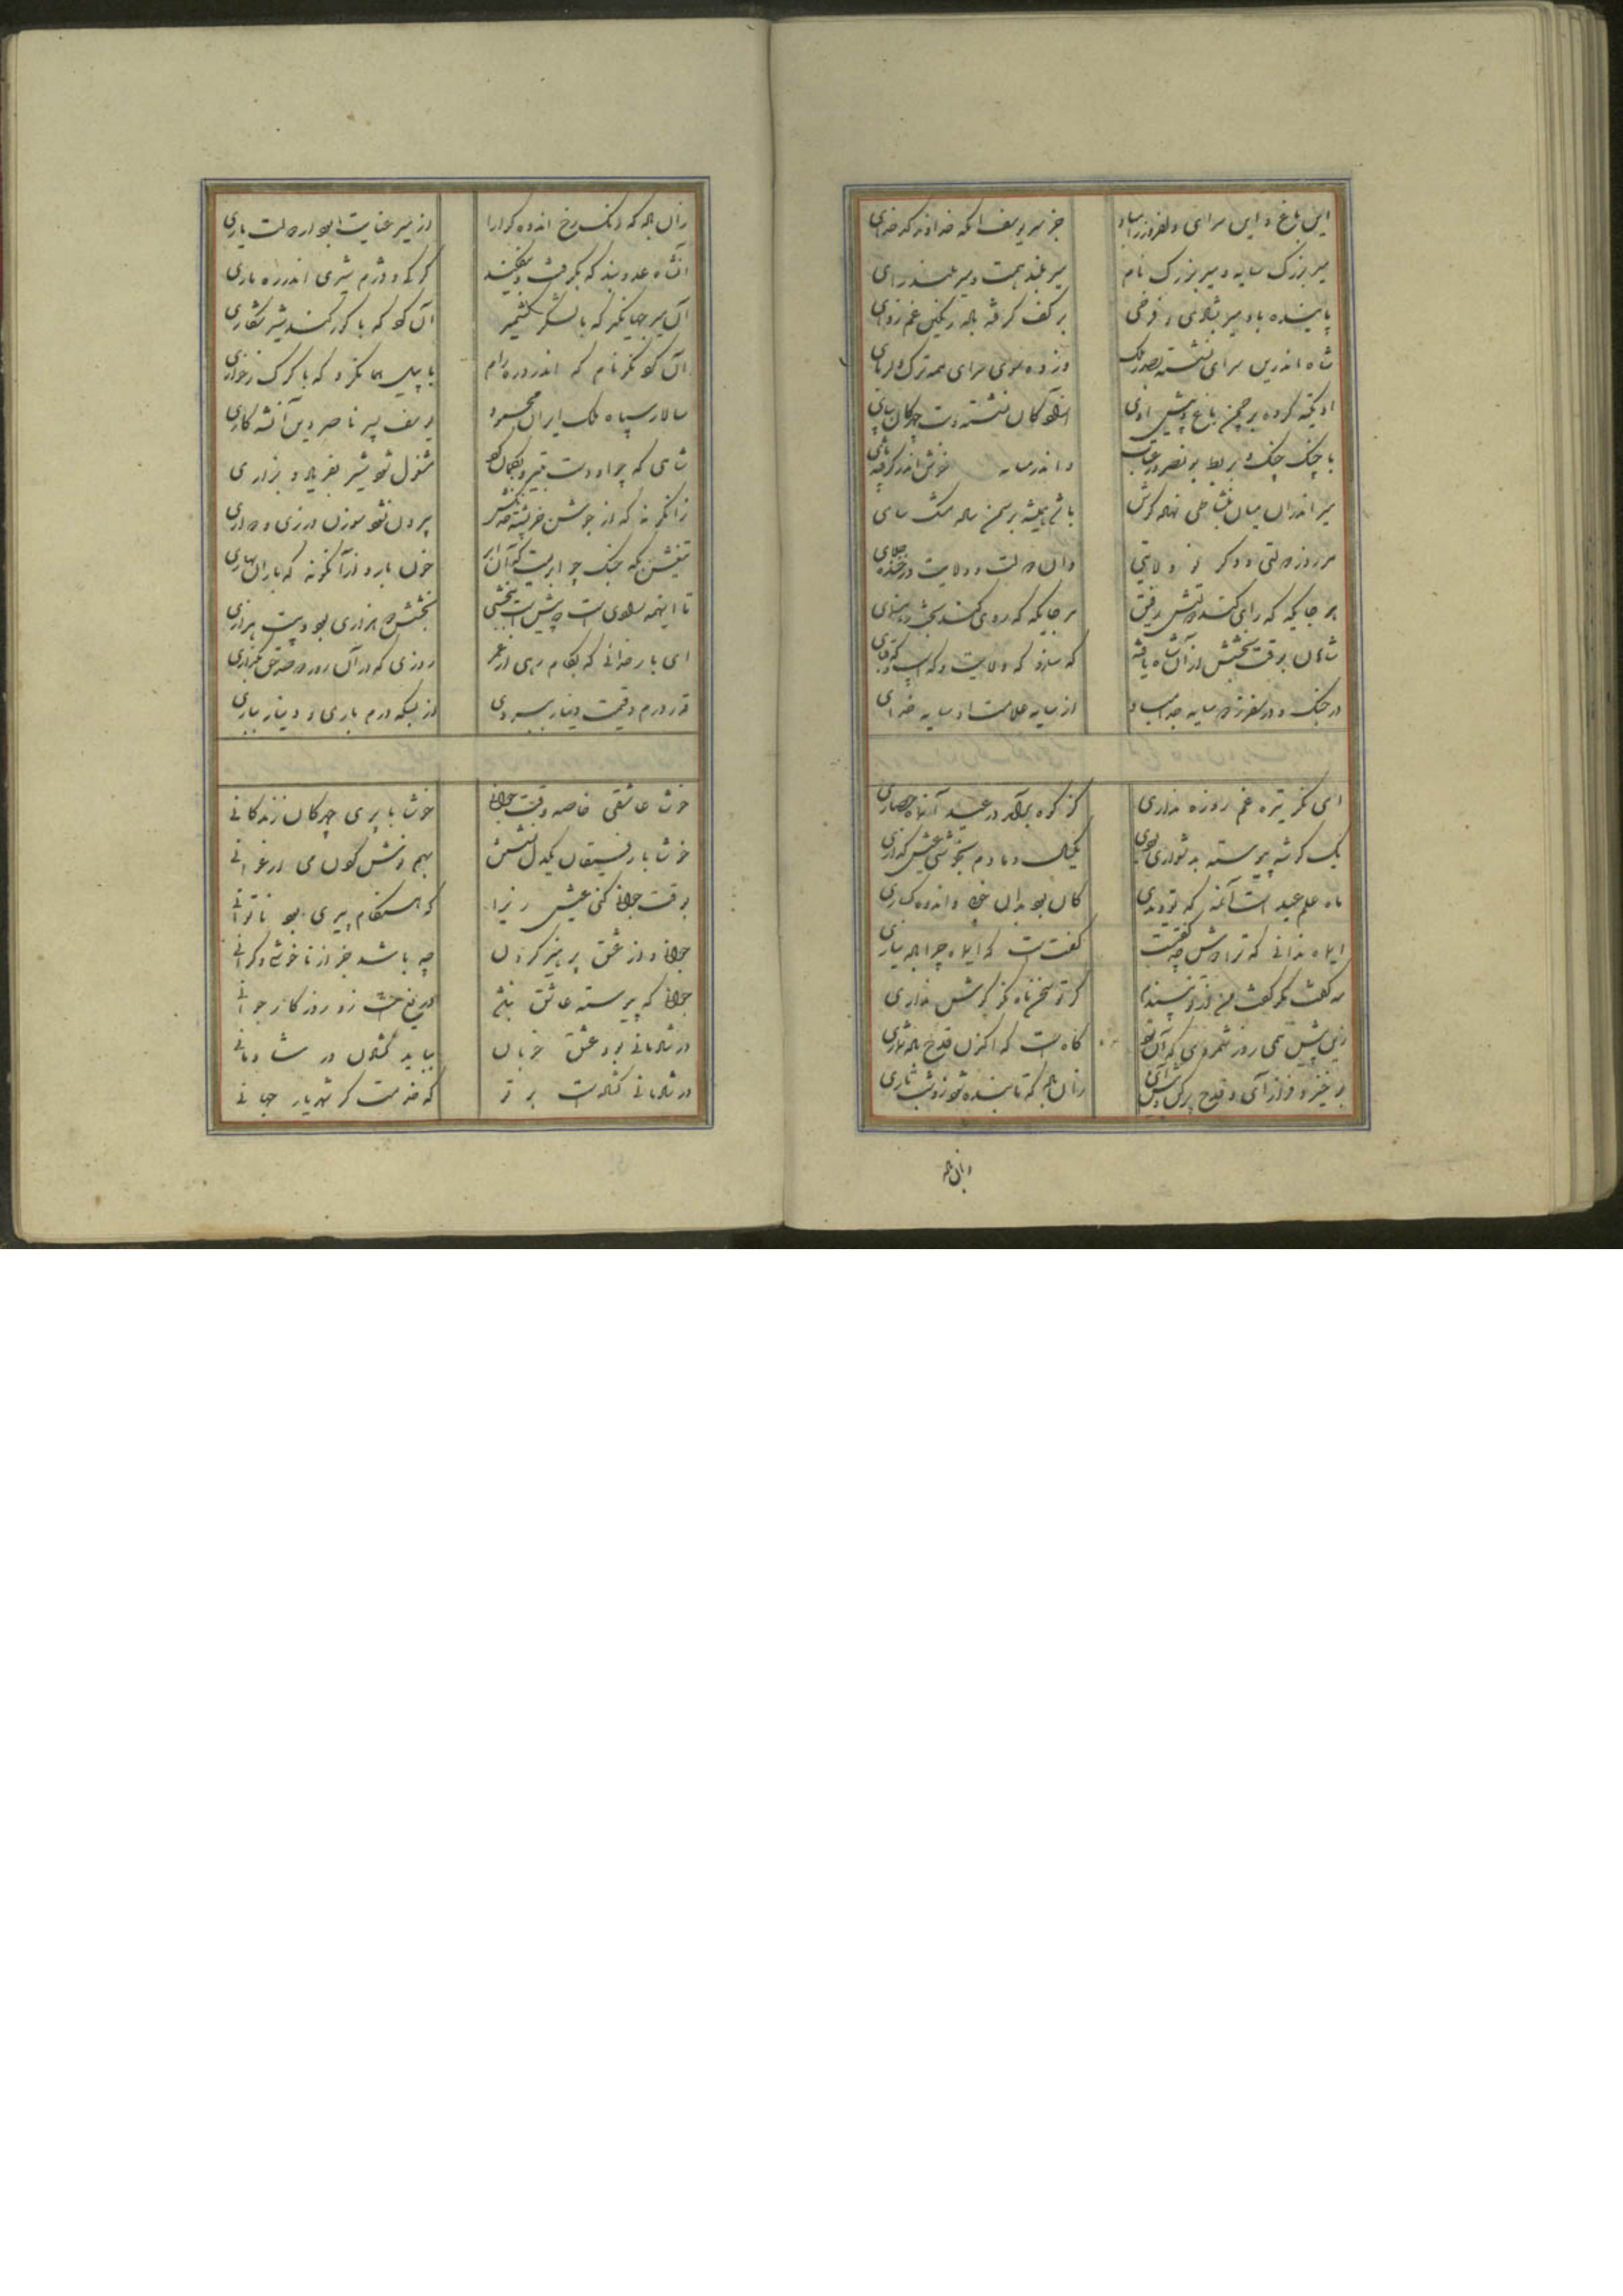 این باغ و این سرای دلفروز را مباد جز میر یوسف آنکه خداوند کدخدای
میر بزرگ سایه و میر بزرگ نام میر بلند همت و میر بلند رای
پاینده باد میر بشادی و فرخی بر کف گرفته باده رنگین غم زدای
شاه اندرین سرای نشسته بصدر ملک وز ده سوی سرای همه ترک دلربای
او تکیه کرده بر چمن باغ و پیش اوی آزاده کان نشسته و بت چهرکان بپای
با چنگ چنگ و بربط بونصر در عتاب و اندر میانه خوش اندر گرفته نای
میر اندران میان بنشاطی نهاده گوش با تی همیشه بر سمن ساده مشک سای
هر روز دولتی دگر و نو ولایتی وان دولت و ولایت در خدای
هر جایگه که رای کند دولتش رفیق هر جایگه که روی کند بخت رهنمای
شاهان بوقت بخشش از آن شاه یافته گه ساز و گه ولایت و گه اسب و گه قبای
در جنگ و در سفر ز دو سایه جدا مباد از سایه علامت و از سایه خدای
ای نگر تیره غم روزه نداری کز کوه برآمد عید آن ماه حصاری
یک گوشه پیوسته بدشواری بودی یکسال دمادم بخوشی عیش گذاری
ماه علم عید است آنمه که تو دیدی کان بود بدان خوبی و اندوه گساری
ای ماه ندانی که ترا دوش چه گفتست گفتست که ای ماه چرا باده نیاری
مه گفت مگر گفت من از تو نپسندم گر تو سخن ماه نگر گوش نداری
زین پیش همی روز شمردی که آن تو گاه است که اکنون قدح باده شماری
برخیز و فراز آی و قدح پر کن و پیش آی زان باده که تابنده شود زو شب تاری
زان باده
زان باده که رنگ رخ اندوه گوارا از میر عنایت بود از دولت یاری
آن شاه عدو بند که بگرفت و بیفکند گرگ و دژم شیری اندر ره باری
آن میر جهانگیر که با لشکر کشمیر آن کرد که با گور کند شیر شکاری
آن کو نگر نام که اندر دره رام با پیل همان کرد که با کرگ ز خواری
سالار سپاه ملک ایران محمود یوسف پسر ناصر دین آن شه کاری
شاهی که چو او دست بتیر و بکمان کرد مشغول شود شیر بفریاد و بزاری
زانگونه که از جوشن خرپشته خدنگش بیرون نشود سوزن درزی ز دواری
تیغش بگه جنگ چو ابریست که آن ابر خون بارد از آنگونه که باران بهاری
تا اینهمه سودی است چو پیشست بخشش بخشش دو هزاری بود و بیست هزاری
ای بار خدائی که بکام رهی از عمر روزی که در آن روز دو صد حق نگزاری
قدر درم و قیمت دینار ببردی از بسکه درم باری و دینار بباری
خوشا عاشقی خاصه وقت جوانی خوشا با پری چهرگان زندگانی
خوشا با رفیقان یکدل نشستن بهم نوش کردن می ارغوانی
بوقت جوانی کنی عیش زیرا که هنگام پیری بود ناتوانی
جوانی و از عشق پرهیز کردن چه باشد جز از ناخوشی و گرانی
جوانی که پیوسته عاشق نباشد دریغ است زو روزگار جوانی
در شادمانی بود عشق خوبان بباید گشودن در شادمانی
در شادمانی گشاده است بر تو که خدمتگر شهریار جهانی